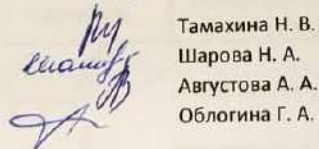 Тамахина Н. В.
Шарова Н. А.
Августова А. А.
Облогина Г. А.